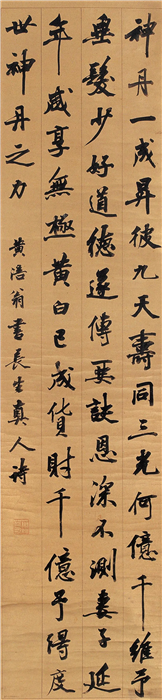 神丹一成昇彼九天壽同三光何億千維予
垂髮少好道德遂傳要訣恩深不測妻子延
年咸享無極黃白已成貨財千億予得度
世神丹之力 黃涪翁書長生真人詩